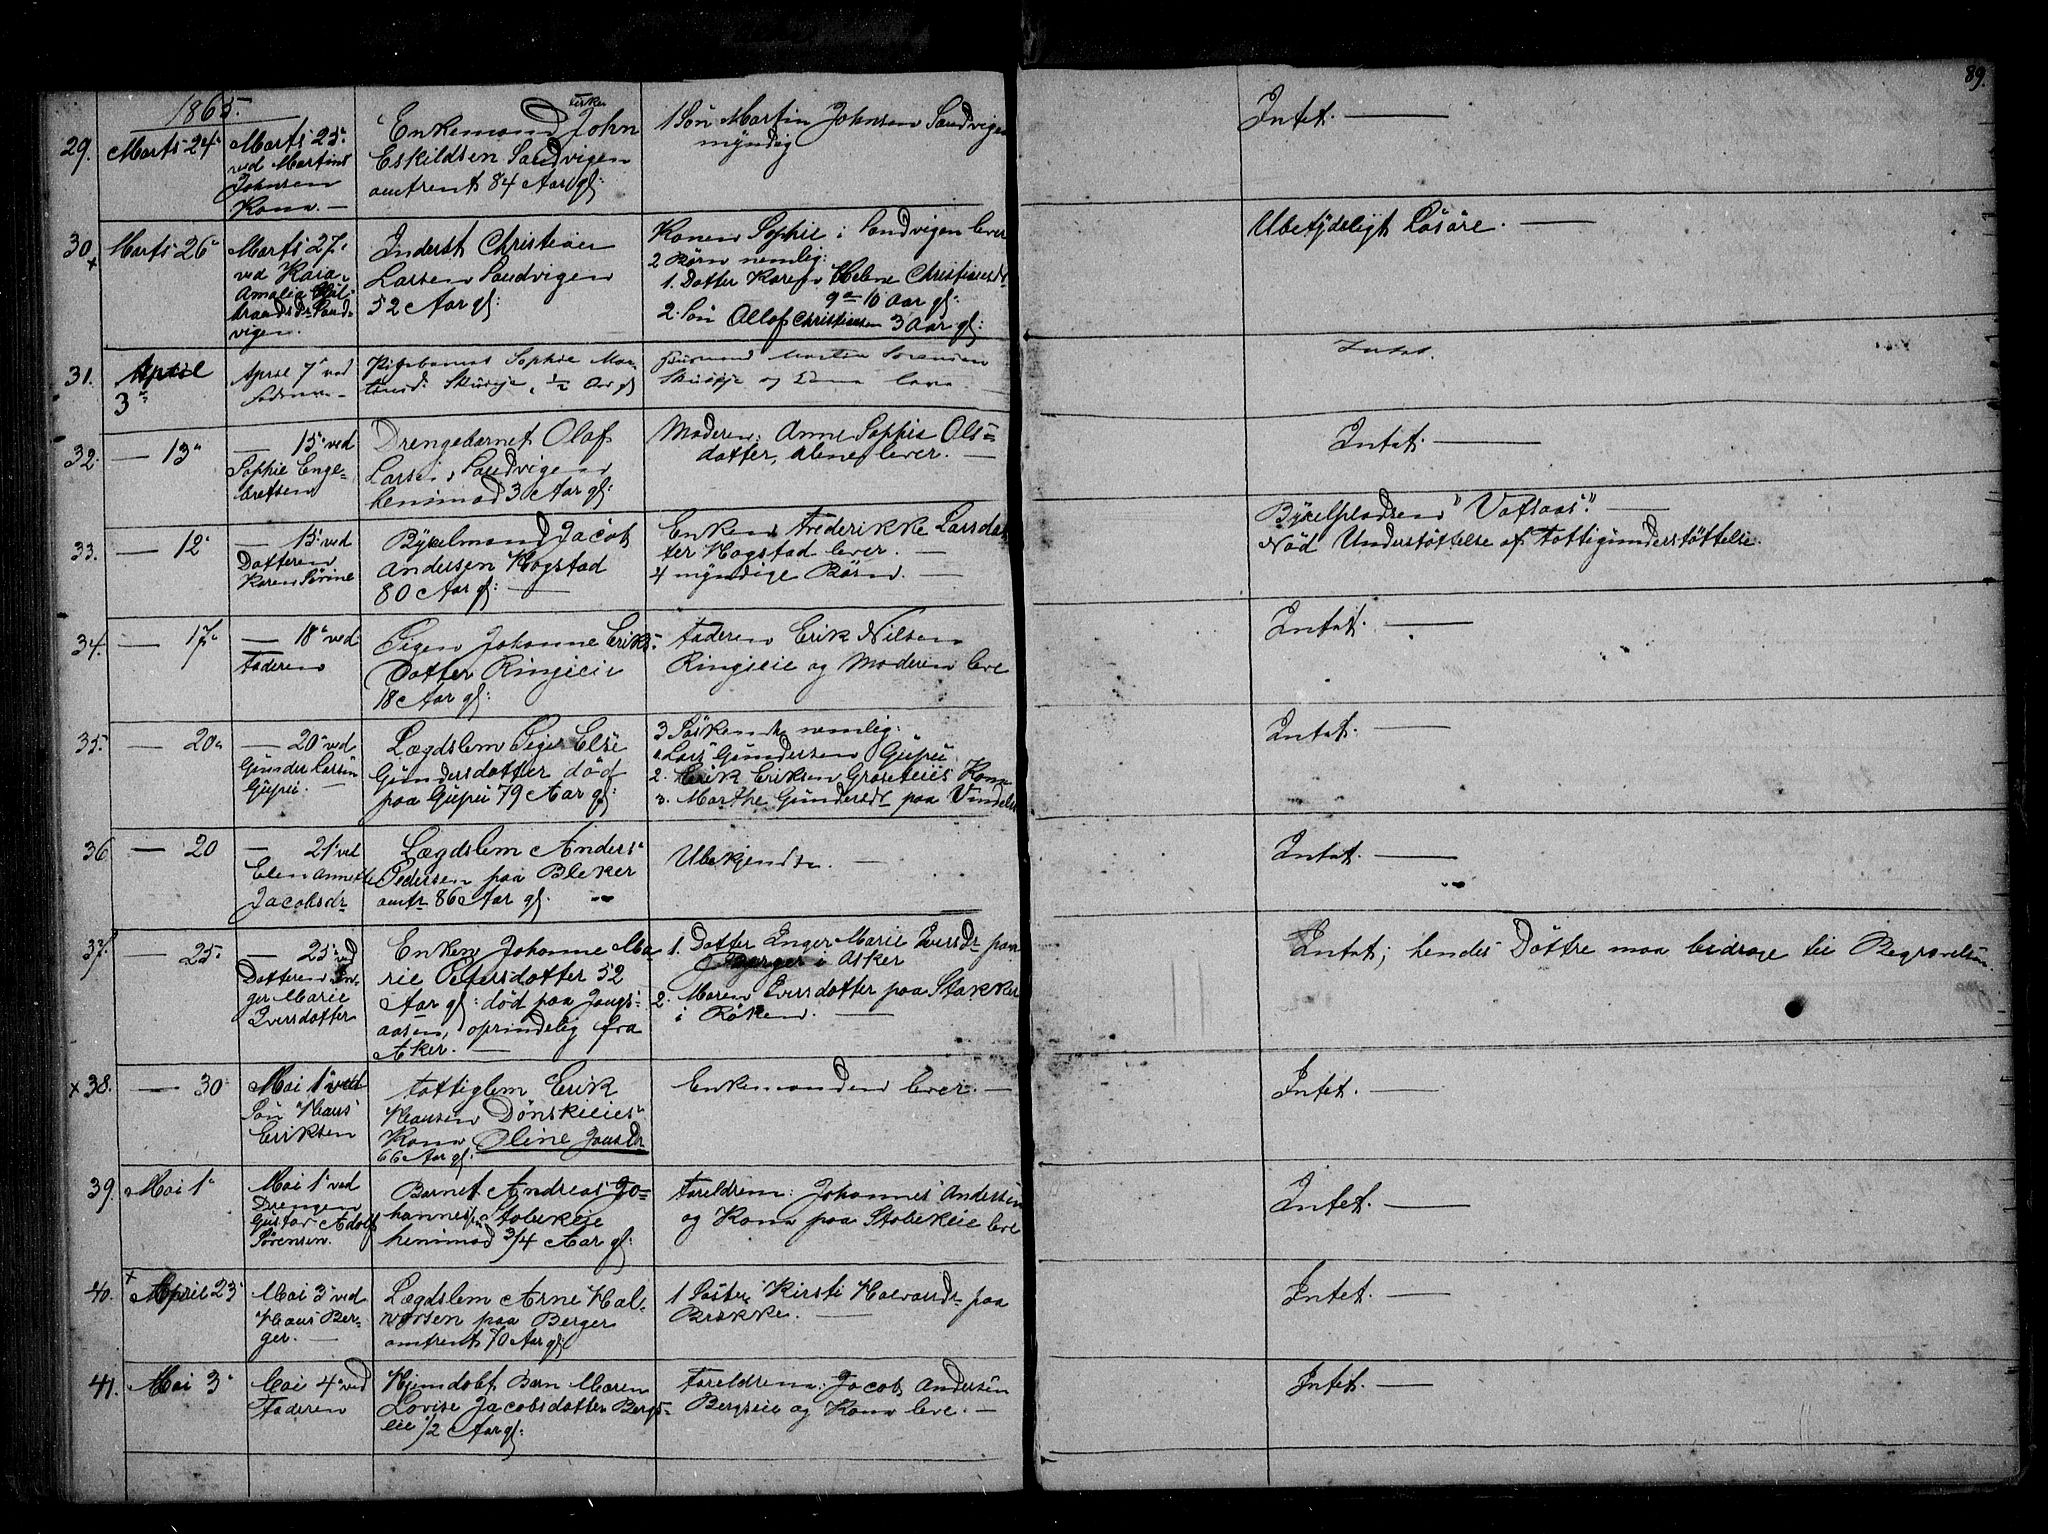 89.
1865.
29. Marts 24 Marts 25 ved Martin Johnsen Kone. —
Enkemand Fisker John Eskildsen Sandvigen omtrent 84 Aar gl:
1 Søn Martin Johnsen Sandvigen myndig
Intet. —
30 Marts 26 Marts 27 ved Amalia vigen.
Inderst Christian Larsen Sandvigen 52 Aar gl:
Konen Sophie i Sandvigen lever
2 Børn nemlig:
1. Datter Karen Helene
9 a 10 Aar gl:
2. Søn Ollof Christiansen 3 Aar gl:
Ubetydeligt Løsøre. —
31. April 3 April 7 ved
Pigebarnet Sophie 1/2 Aar gl
Martin Sorensen
og leve
Intet.
32. — 13 — 15 ved Sophie Engebretsen
Drengebarnet Olaf Larsen, Sandvigen henimod 3 Aar gl:
Moderen: Anne Sophie Olsdatter, alene lever. —
Intet. —
33. — 12 — 15 ved Datteren Karen Sørine
Bÿxelmand Jacob Andersen Hogstad 80 Aar gl: —
Enken Frederikke Larsdatter Hogstad lever. —
4 myndige Børn. —
Bÿxelpladsen —
Nød Understøttelse af Fattigunderstøttelse.
34. — 17 — 18 ved Faderen
Pigen Johanne Eriks-
Datter Ringieie
18 Aar gl:
Faderen Erik Nilsen
Ringieie og Moderen leve
Intet. —
35. — 20 — 20 ved Gunder Larsen
Lægdslem Pige Else
Gundersdatter død
paa 79 Aar gl:
3 Søskende nemlig:
1. Lars Gundersen
2. Erik Eriksen Kone
3. Marthe Gundersdr paa
Intet. —
36 — 20 — 21 ved
Elen Annette
Jacobsdr
Lægdslem Anders
Pedersen paa Bleker
omtr 86 Aar gl.
Ubekjendte. —
Intet. —
37. — 25. — 25 ved
Datteren Inger Marie Iversdatter
Enken Johanne Marie Pedersdatter 52
Aar gl: død paa
aasen, oprindelig fra
Aker. —
1. Datter Inger Marie Iversdr paa
Berger i Asker
2. Maren Iversdatter paa Stokker
i Røken. —
Intet; hendes Døttre maa bidrage til Begravelsen.
x 38. — 30 Mai 1 ved
Søn Klaus
Eriksen
Fattiglem Erik
Klausen Dønskieies
Kone Oline
66 Aar gl:
Enkemanden lever. —
Intet. —
39. Mai 1 Mai 1 ved
Drengen
Gustav Adolf
Sørensen.
Barnet Andreas Jo-
hannes
henimod 3/4 Aar gl:
Foreldrene: Johannes Andersen
og Kone paa leve
Intet. —
40. April 23 Mai 3 ved
Klaus Ber-
ger. —
Lægdslem Arne Hal-
vorsen paa Berger
omtrent 70 Aar gl:
1 Søster Kirsti Halvorsdr paa
—
Intet. —
41. Mai 3 Mai 4 ved
Faderen
Hjemdøbt Barn Maren
Lovise Jacobsdatter Bergs-
eie 1/2 Aar gl:
Foreldrene: Jacob Andersen
Bergseie og Kone leve. —
Intet. —